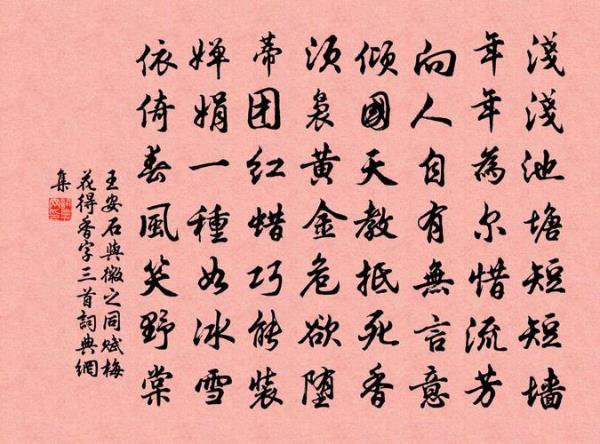 淺淺池塘短短墙
年年為尔惜流芳
向人自有無言意
倾國天教抵死香
须袅黄金危欲堕
蒂团红蜡巧能装
婵娟一種如冰雪
依倚春風笑野棠
王安石與微之同賦梅
花得香字三首詞典網
集